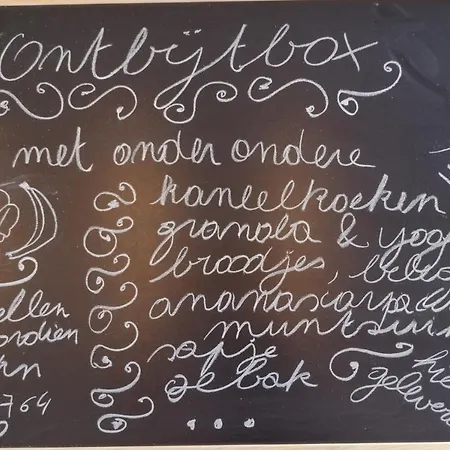 Ontbijtbox
met onder ondere
kaneelkoeken
granola & yog
broodjes, bele
ananascarpa
munt
sapje
gebak
...
ellen
764
geleverd